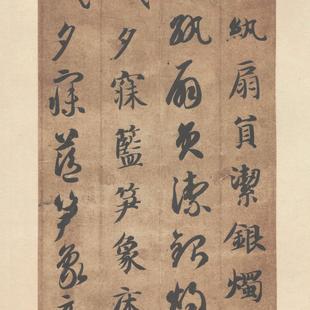 紈扇員潔銀燭
紈扇員潔銀燭
夕寐籃笋象床
夕寐藍笋象